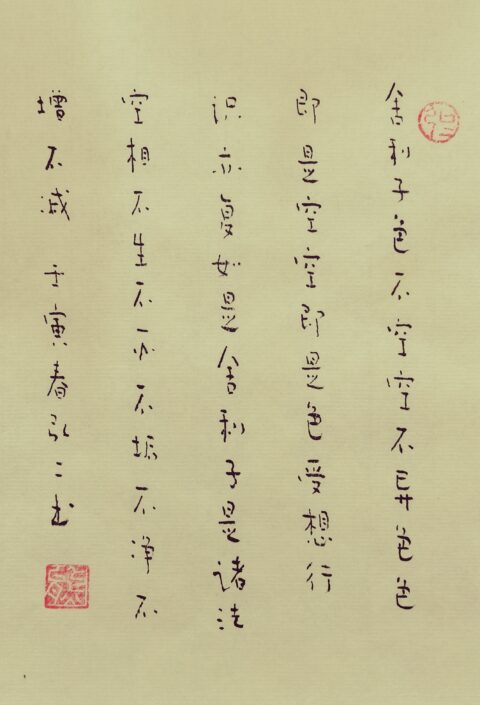 舍利子色不空空不异色色
即是空空即是色受想行
识亦复如是舍利子是诸法
空相不生不灭不垢不净不
增不减 壬寅春弘二书